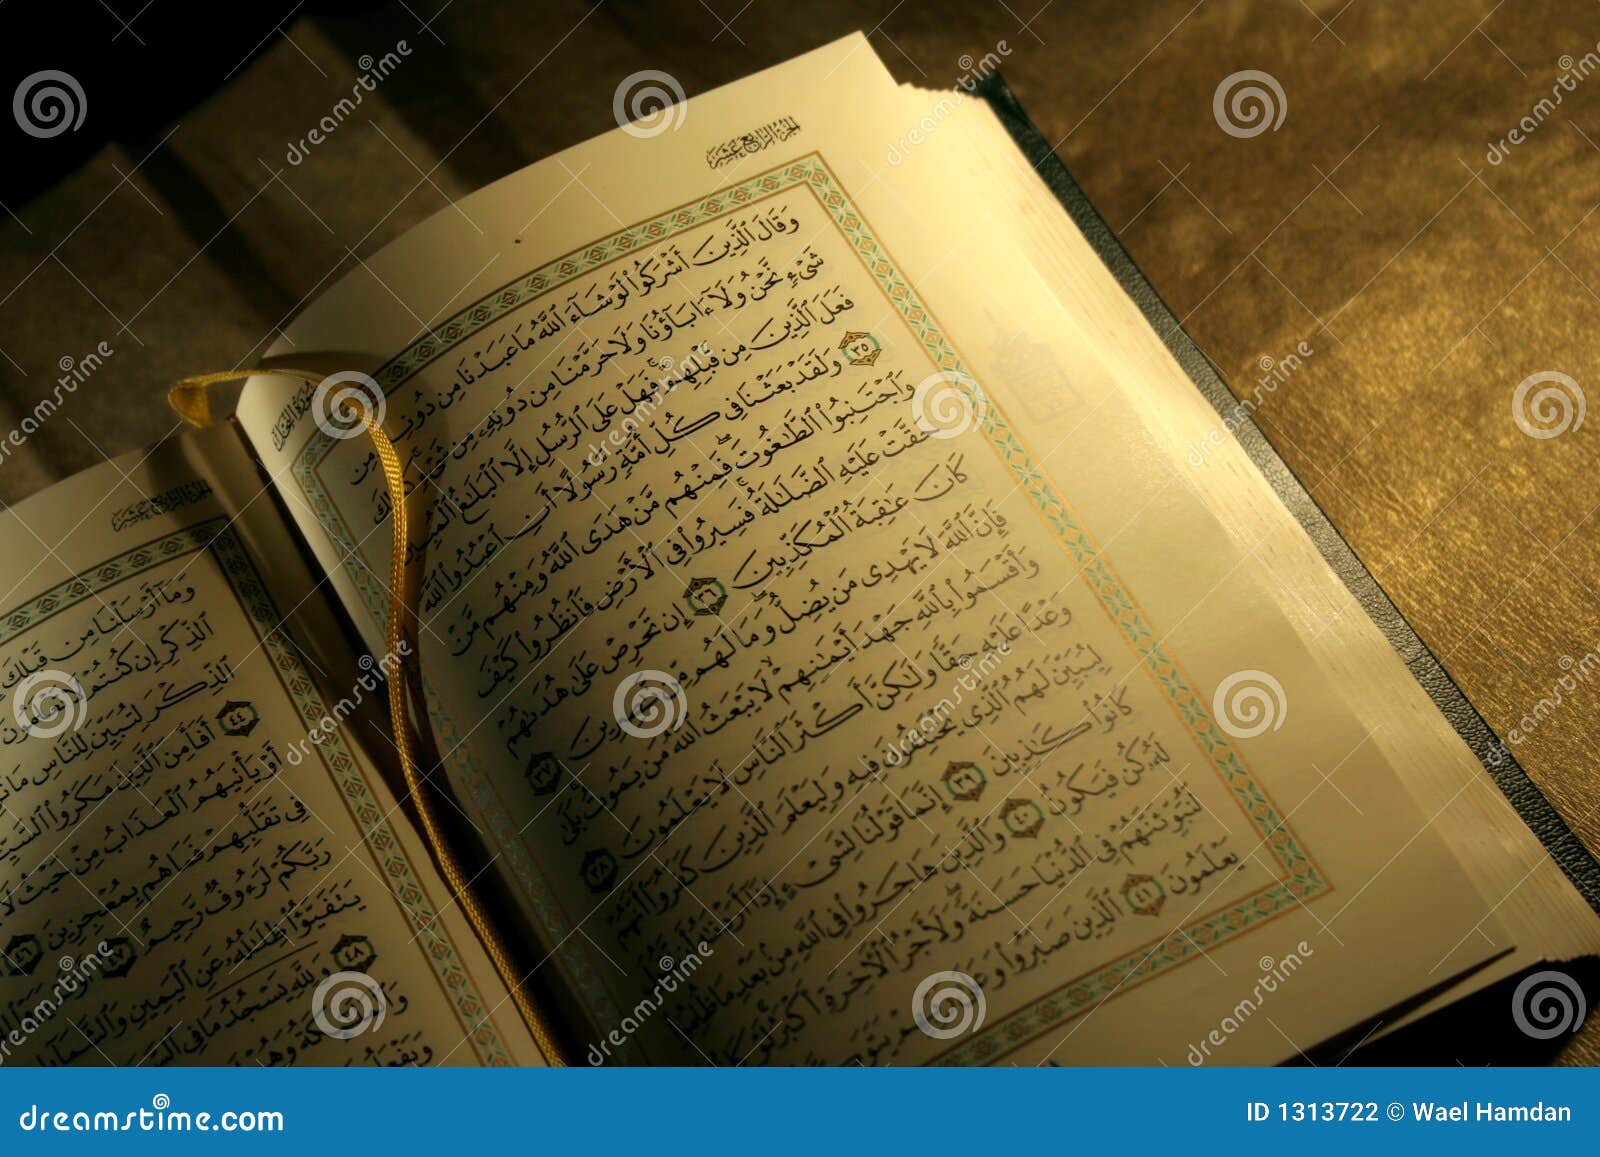 الجزء الرابع عشر
سورة النحل
وَقَالَ ٱلَّذِينَ أَشْرَكُوا۟ لَوْ شَآءَ ٱللَّهُ مَا عَبَدْنَا مِن دُونِهِۦ مِن
شَىْءٍ نَّحْنُ وَلَآ ءَابَآؤُنَا وَلَا حَرَّمْنَا مِن دُونِهِۦ مِن شَىْءٍ كَذَٰلِكَ
فَعَلَ ٱلَّذِينَ مِن قَبْلِهِمْ ۚ فَهَلْ عَلَى ٱلرُّسُلِ إِلَّا ٱلْبَلَٰغُ ٱلْمُبِينُ
٣٥ وَلَقَدْ بَعَثْنَا فِى كُلِّ أُمَّةٍ رَّسُولًا أَنِ ٱعْبُدُوا۟ ٱللَّهَ
وَٱجْتَنِبُوا۟ ٱلطَّٰغُوتَ ۖ فَمِنْهُم مَّنْ هَدَى ٱللَّهُ وَمِنْهُم مَّنْ
حَقَّتْ عَلَيْهِ ٱلضَّلَٰلَةُ ۚ فَسِيرُوا۟ فِى ٱلْأَرْضِ فَٱنظُرُوا۟ كَيْفَ
كَانَ عَٰقِبَةُ ٱلْمُكَذِّبِينَ ٣٦ إِن تَحْرِصْ عَلَىٰ هُدَىٰهُمْ
فَإِنَّ ٱللَّهَ لَا يَهْدِى مَن يُضِلُّ ۖ وَمَا لَهُم مِّن نَّٰصِرِينَ ٣٧
وَأَقْسَمُوا۟ بِٱللَّهِ جَهْدَ أَيْمَٰنِهِمْ ۙ لَا يَبْعَثُ ٱللَّهُ مَن يَمُوتُ ۚ بَلَىٰ
وَعْدًا عَلَيْهِ حَقًّا وَلَٰكِنَّ أَكْثَرَ ٱلنَّاسِ لَا يَعْلَمُونَ ٣٨
لِيُبَيِّنَ لَهُمُ ٱلَّذِى يَخْتَلِفُونَ فِيهِ وَلِيَعْلَمَ ٱلَّذِينَ كَفَرُوٓا۟ أَنَّهُمْ
كَانُوا۟ كَٰذِبِينَ ٣٩ إِنَّمَا قَوْلُنَا لِشَىْءٍ إِذَآ أَرَدْنَٰهُ أَن نَّقُولَ
لَهُۥ كُن فَيَكُونُ ٤٠ وَٱلَّذِينَ هَاجَرُوا۟ فِى ٱللَّهِ مِنۢ بَعْدِ مَا ظُلِمُوا۟
لَنُبَوِّئَنَّهُمْ فِى ٱلدُّنْيَا حَسَنَةً ۖ وَلَأَجْرُ ٱلْءَاخِرَةِ أَكْبَرُ ۚ لَوْ كَانُوا۟
يَعْلَمُونَ ٤١ ٱلَّذِينَ صَبَرُوا۟ وَعَلَىٰ
الجزء الرابع عشر
وَمَآ أَرْسَلْنَا مِن قَبْلِكَ
ٱلذِّكْرِ إِن كُنتُمْ لَا تَعْلَمُونَ
ٱلذِّكْرَ لِتُبَيِّنَ لِلنَّاسِ مَا
٤٤ أَفَأَمِنَ ٱلَّذِينَ مَكَرُوا۟ ٱلسَّيِّـَٔاتِ
أَوْ يَأْتِيَهُمُ ٱلْعَذَابُ مِنْ حَيْثُ لَا
فِى تَقَلُّبِهِمْ فَمَا هُم بِمُعْجِزِينَ ٤٦
رَبَّكُمْ لَرَءُوفٌ رَّحِيمٌ ٤٧
يَتَفَيَّؤُا۟ ظِلَٰلُهُۥ عَنِ ٱلْيَمِينِ وَٱلشَّمَآئِلِ
٤٨ وَلِلَّهِ يَسْجُدُ مَا فِى
وَٱلْمَلَٰٓئِكَةُ وَهُمْ
وَيَفْعَلُونَ
dreamstime.com
ID 1313722 © Wael Hamdan